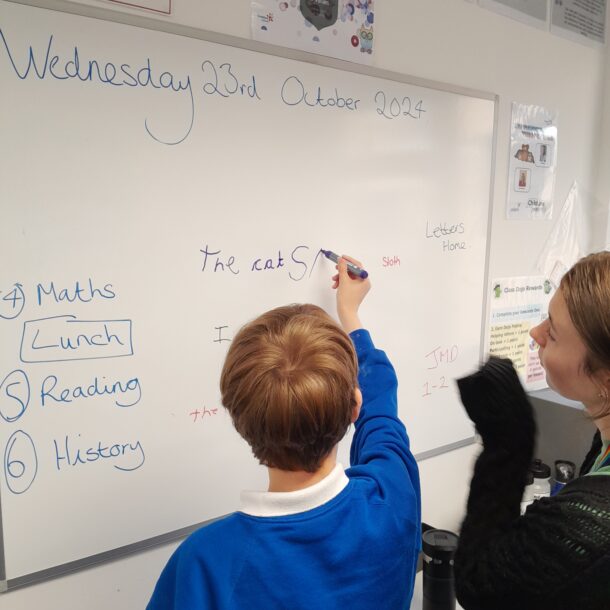 Wednesday 23rd October 2024
Letters
Home.
The cat S
Sloth
4 Maths
Lunch
I
5 Reading
the
JMD
1-2
6 History
Class Dojo Rewards